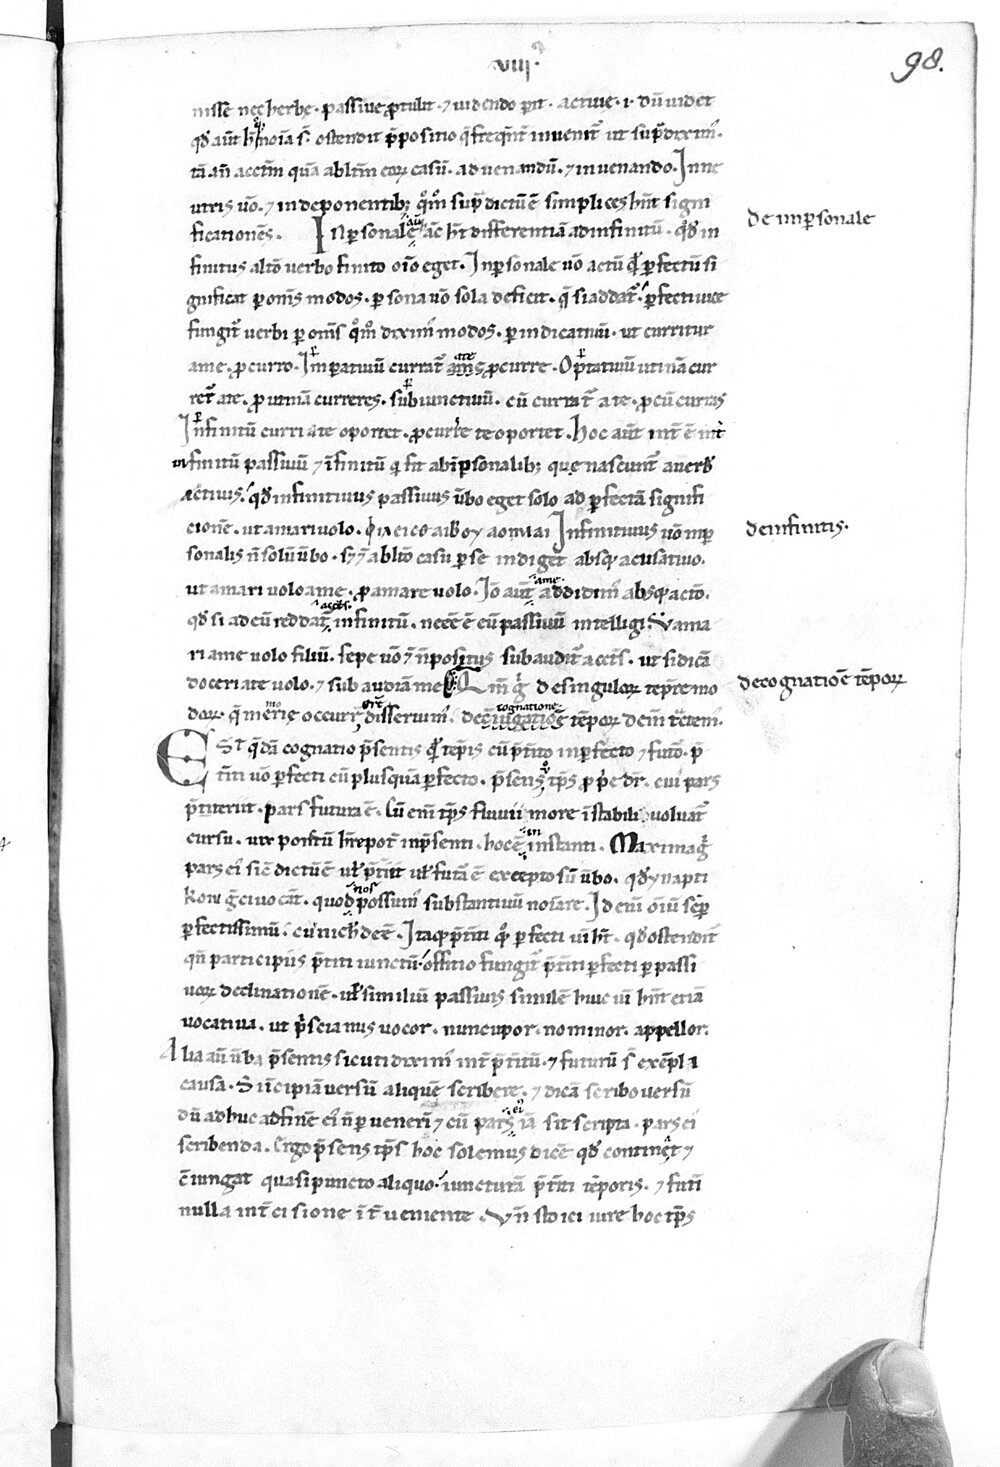 VIII.
98.
nisse nec herbę. passive protulit. ⁊ videndo perit. active. i. dū videt
q̄d aūt h̄ noīa s̄. ostendit p̄positio q̄ frequent̄ invenit̄ ut sup̄ diximꝰ.
tā añ acctm̄ quā abltm̄ eoꝝ casū. ad venandū. ⁊ in venando. In ne
utris vō. ⁊ in deponentib; qꝰmꝰ sup̄ dictū ē simplices hn̄t signi
ficationēs. Inp̄sonale aū hāc ht̄ differentiā ad infinitū. qd̄ in
finitus alio verbo finito oīo eget. Inp̄sonale vō actū q̄si p̄fectū si
gnificat p̄ omīs modos. p̄sona vō sola deficit. q̄ si addat̄. p̄fecti vice
fungit̄ verbi p̄ omīs qꝰmꝰ diximꝰ modos. p̄ indicativū. ut curritur
a me. p̄ curro. Imp̄ativū currat̄ a te p̄ curre. Optativū utinā cur
ret̄ a te. p̄ utinā curreres. subiunctivū. cū currat̄ a te. p̄ cū curras
Infinitū curri a te oportet. p̄ currere te oportet. hoc aūt int̄ ē int̄
infinitū passivū ⁊ īfinitū q̄ fit ab īp̄sonalib; que nascunt̄ a verb̄
activis. qd̄ infinitivus passivus v̄bo eget solo ad p̄fectā signifi
cionē. ut amari volo. Infinitivus vō inp̄
sonalis n̄ solū v̄bo. s; ⁊ abltō casu p̄ se indiget absq; acusativo.
ut amari volo a me. p̄ amare volo. Iō aūt a me addidimꝰ absq; actō.
qd̄ si ad eū reddat̄ accꝰs. infinitū. necē ē eū passivū intelligi ut ama
ri a me volo filiū. sepe vō ⁊ n̄ positus subaudit̄ accꝰs. ut si dicā
doceri a te volo. ⁊ subaudiā me. Qm̄ g̊ de singuloꝝ tēp̄re mo
doꝝ. q̄ memorię occurrer̄t disseruimꝰ. de cognatione tēpoꝝ deinde tractemꝰ.
Est q̄dā cognatio p̄sentis q̄ tēp̄is cū p̄tito inp̄fecto ⁊ futō. p̄
titi vō p̄fecti cū plusquā p̄fecto. p̄sens tp̄s p̄p̄e dr̄. cui pars
p̄tiverit. pars futura ē. Cū enī tp̄s fluvii more īstabili volvat̄
cursu. vix pontū hr̄e pot̄ in p̄senti. hoc ē in instanti. Maxima g̊
pars ei sic dictū ē vl̄ p̄titit vl̄ futā ē excepto sū v̄bo. qd̄ ynapti
kon gci vocāt. quod nos possumꝰ substantivū noīare. Id enī oīū sēp̄
p̄fectissimū. cui nich̄ deē. Itaq; p̄titi q̄ p̄fecti vī ht̄. qd̄ ostendit̄
qn̄ participiis p̄titi iunctū. offitio fungit̄ p̄titi p̄fecti p̄ passi
voꝝ declinationē. vl̄ similiū passivis similē huic vī hn̄t etiā
vocativa. ut p̄scianus vocor. nuncupor. nominor. appellor.
Alia aū v̄ba p̄sentis sicuti diximꝰ int̄ p̄titū. ⁊ futurū s̄ exēpli
causa. Si īcipiā versū aliquē scribere. ⁊ dicā scribo versū
dū adhuc ad finē ei n̄ p̄venerī ⁊ cū pars ei iā sit scripta. pars ei
scribenda. Ergo p̄sens tp̄s hoc solemus dicē qd̄ contineat ⁊
ɔ̄iungat quasi puncto aliquo. iuncturā p̄titi tēporis. ⁊ futi
nulla int̄cisione īt̄veniente. Vn̄ stoici iure hoc tp̄s
de inp̄sonale
de infinitis.
de cognatiōe tēpoꝝ